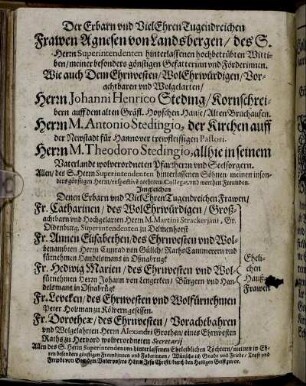 Der Erbarn vnd VielEhrenTugendreichen
Frawen Agnesen von Landsbergen / des S.
Herrn Superintendenten hinterlassenen hochbetrübten Wittiben /
meiner besonders günstigen Gefatterinn vnd Förderinnen.
Wie auch Dem Ehrwesten / WolEhrwürdigen / Vor-
achtbaren vnd Wolgelarten /
Herrn Johanni Henrico Steding / Kornschreibern
auff dem alten Gräfl. Hoyschen Hause / Alten Bruchausen.
Herrn M. Antonio Stedingio, der Kirchen auff
der Newstadt für Hannover trewfleissigen Pastori.
Herrn M. Theodoro Stedingio, allhie in seinem
Vaterlande wolverordneten Pfarherrn vnd Seelsorgern.
Allen / des S. Herrn Superintendenten hinterlassenen Söhnen / meinen insonders
günstigen Herrn / respectivè geehrten Collegen, vnd werthen Freunden.
Imgleichen
Denen Erbarn vnd VielEhrenTugendreichen Frawen /
Fr. Catharinen / des WolEhrwürdigen / Groß-
achtbarn vnd Hochgelarten Herrn M. Martini Strackerjani, Gr.
Oldenburg. Superintendenten zu Delmenhorst
Fr. Annen Elisabethen / des Ehrwesten vnd Wol-
benambten Herrn Conradi von Gülich / Rahts Cammerern vnd
fürnehmen Handelsmans in Oßnabrugk
Fr. Hedwig Marien / des Ehrwesten vnd Wol-
fürnehmen Herrn Johann von Lengerken / Bürgern vnd Han-
delsmans in Oßnabrügk
Fr. Leveken / des Ehrwesten vnd Wolfürnehmen
Peter Hofmans zu Rövern gesessen.
Fr. Dorotheæ / des Ehrwesten / Vorachtbahren
vnd Wolgelahrten Herrn Alexandri
Rahts zu Hervord wolverordneten Secretarij
Ehelichen
Haus-
Frawen
Allen des S. Herrn Superintendenten hinterlassenen Eheleiblichen Töchtern / meinen in Ehren
besondern günstigen Freundinnen